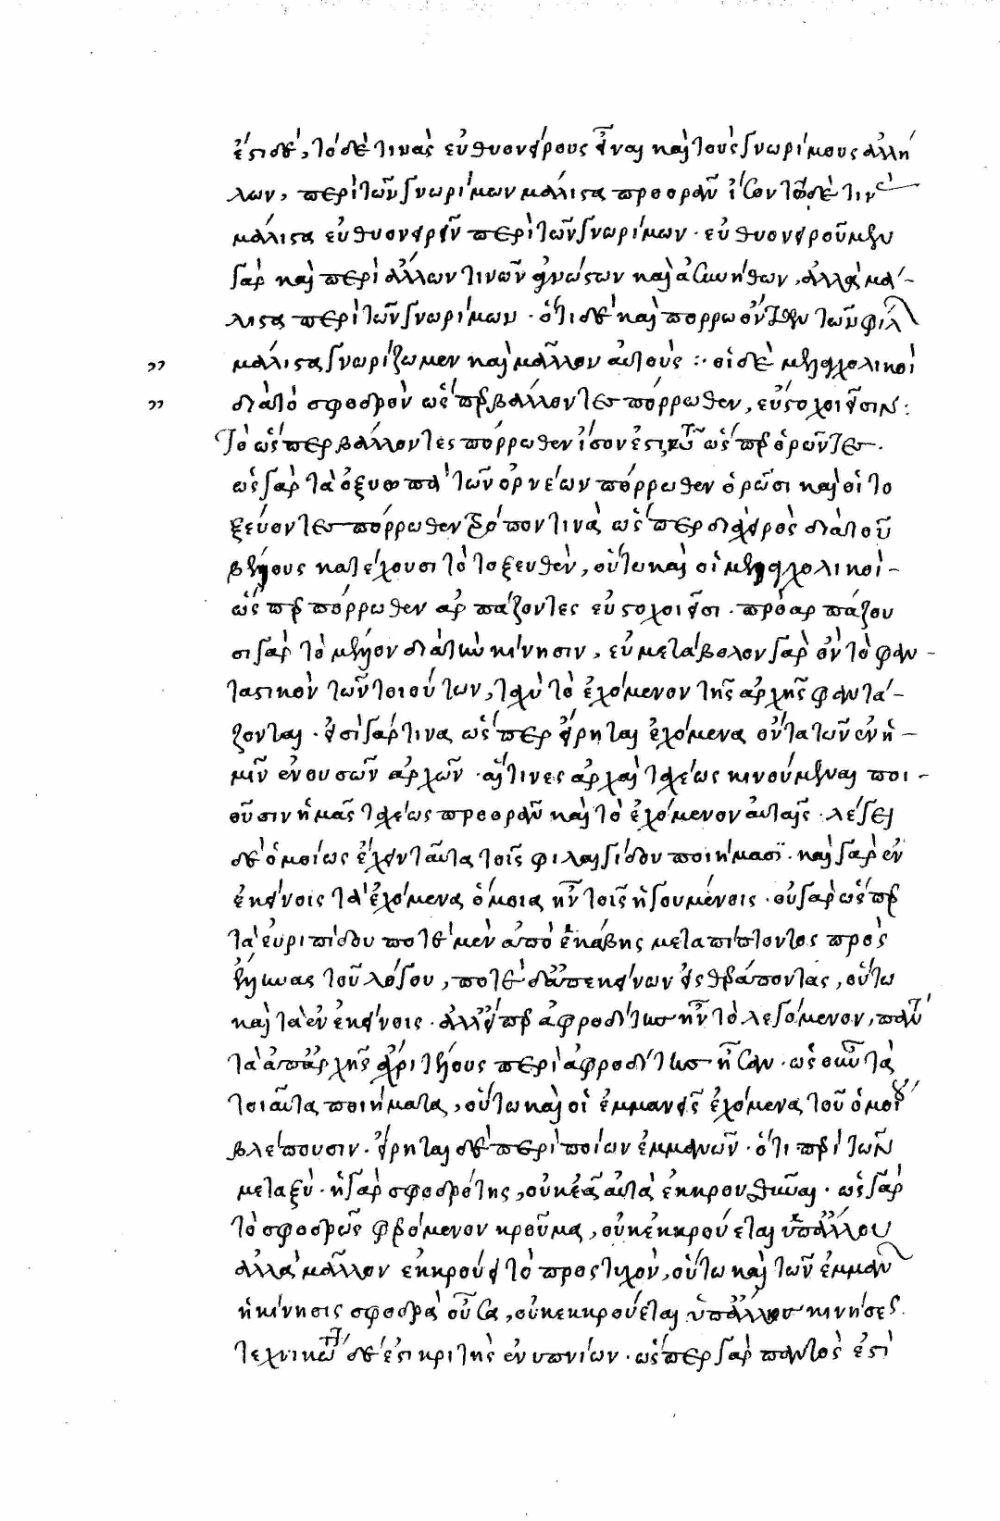 ἐστι δέ, τὸ δὲ τινὰς εὐθυονείρους εἶναι καὶ τοὺς γνωρίμους ἀλλή
λων, περὶ τῶν γνωρίμων μάλιστα προορᾶν ἴσον τῶδε τιν
μάλιστα εὐθυονειρεῖν περὶ τῶν γνωρίμων · εὐθυονειροῦμεν
γὰρ καὶ περὶ ἄλλων τινῶν ἀγνώστων καὶ ἀσυνήθων, ἀλλὰ μά-
λιστα περὶ τῶν γνωρίμων · ὅτι δὲ καὶ πόρρω ὄντων τῶν φίλ
μάλιστα γνωρίζομεν καὶ μᾶλλον αὐτούς :· οἱ δὲ μελαγχολικοὶ
διὰ τὸ σφοδρὸν ὥσπερ βάλλοντες πόρρωθεν, εὔστοχοι εἰσιν :
Τὸ ὥσπερ βάλλοντες πόρρωθεν ἴσον ἐστι τῶ ὥσπερ ὁρῶντες ·
ὡς γὰρ τὰ ὀξυωπὰ τῶν ὀρνέων πόρρωθεν ὁρῶσι καὶ οἱ το
ξεύοντες πόρρωθεν τρόπον τινὰ ὥσπερ δι' ἀέρος διὰ τοῦ
βέλους κατέχουσι τὸ τοξευθέν, οὕτω καὶ οἱ μελαγχολικοί -
ὥσπερ πόρρωθεν ἁρπάζοντες εὔστοχοι εἰσι · προαρπάζου
σι γὰρ τὸ μέλλον διὰ τὴν κίνησιν, εὐμετάβολον γὰρ ὂν τὸ φαν -
ταστικὸν τῶν τοιούτων, ταχὺ τὸ ἐχόμενον τῆς ἀρχῆς φαντά-
ζονται · εἰσὶ γάρ τινα ὥσπερ εἴρηται ἐχόμενα ὄντα τῶν ἐν ἡ -
μῖν ἐνουσῶν ἀρχῶν · αἵτινες ἀρχαὶ ταχέως κινούμεναι ποι -
οῦσιν ἡμᾶς ταχέως προορᾶν καὶ τὸ ἐχόμενον αὐταῖς · λέγει
δὲ ὁμοίως ἔχειν ταῦτα τοῖς φιλαιγίδου ποιήμασι · καὶ γὰρ ἐν
ἐκείνοις τὰ ἐχόμενα ὅμοια ἦν τοῖς ἡγουμένοις · οὐ γὰρ ὥσπερ
τὰ εὐριπίδου ποτὲ μὲν ἀπὸ ἑκάβης μεταπίπτοντος πρὸς
ἕλληνας τοῦ λόγου, ποτὲ δ' ἀπ' ἐκείνων εἰς θεράποντας, οὕτω
καὶ τὰ ἐν ἐκείνοις · ἀλλ' εἴπερ ἀφροδίτης ἦν τὸ λεγόμενον, πάν
τὰ ἀπ' ἀρχῆς ἄχρι τέλους περὶ ἀφροδίτης ἦσαν · ὡς οὖν τὰ
τοιαῦτα ποιήματα, οὕτω καὶ οἱ ἐμμανεῖς ἐχόμενα τοῦ ὁμοίου
βλέπουσιν · εἴρηται δὲ περὶ ποίων ἐμμανῶν · ὅτι περὶ τῶν
μεταξύ · ἡ γὰρ σφοδρότης, οὐκ ἐᾷ αὐτὰ ἐκκρουσθῆναι · ὡς γὰρ
τὸ σφοδρῶς φερόμενον κροῦμα, οὐκ ἐκκρούεται ὑπ' ἄλλου
ἀλλὰ μᾶλλον ἐκκρούει τὸ προστυχόν, οὕτω καὶ τῶν ἐμμαν
ἡ κίνησις σφοδρὰ οὖσα, οὐκ ἐκκρούεται ὑπ' ἄλλου κινήσεως
τεχνικώτ δέ ἐστι κριτὴς ἐνυπνίων · ὥσπερ γὰρ παντός ἐστὶ